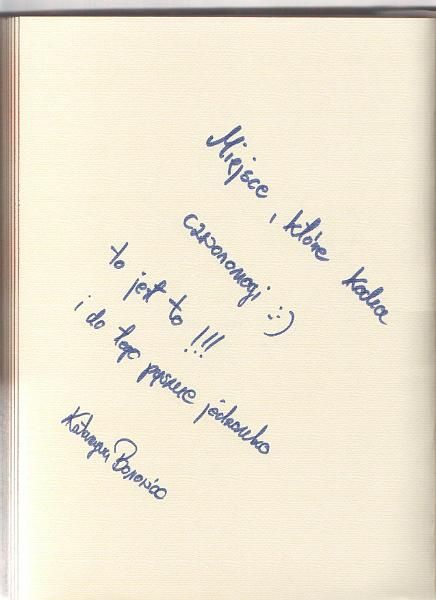 Miejsce, które kocha
czworonogi :)
to jest to!!!
i do tego pyszne jedzonko
Katarzyna